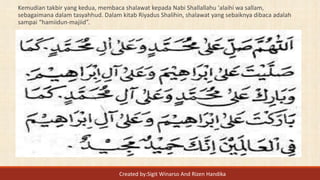 Kemudian takbir yang kedua, membaca shalawat kepada Nabi Shallallahu 'alaihi wa sallam,
sebagaimana dalam tasyahhud. Dalam kitab Riyadus Shalihin, shalawat yang sebaiknya dibaca adalah
sampai "hamiidun-majiid".
اَللّٰهُمَّ صَلِّ عَلٰى مُحَمَّدٍ وَعَلٰى آلِ مُحَمَّدٍ. كَمَا
صَلَّيْتَ عَلٰى إِبْرَاهِيْمَ وَعَلٰى آلِ إِبْرَاهِيْمَ
وَبَارِكْ عَلٰى مُحَمَّدٍ وَعَلٰى آلِ مُحَمَّدٍ. كَمَا
بَارَكْتَ عَلٰى إِبْرَاهِيْمَ وَعَلٰى آلِ إِبْرَاهِيْمَ
فِي الْعَالَمِيْنَ إِنَّكَ حَمِيْدٌ مَجِيْدٌ.
Created by:Sigit Winarso And Rizen Handika